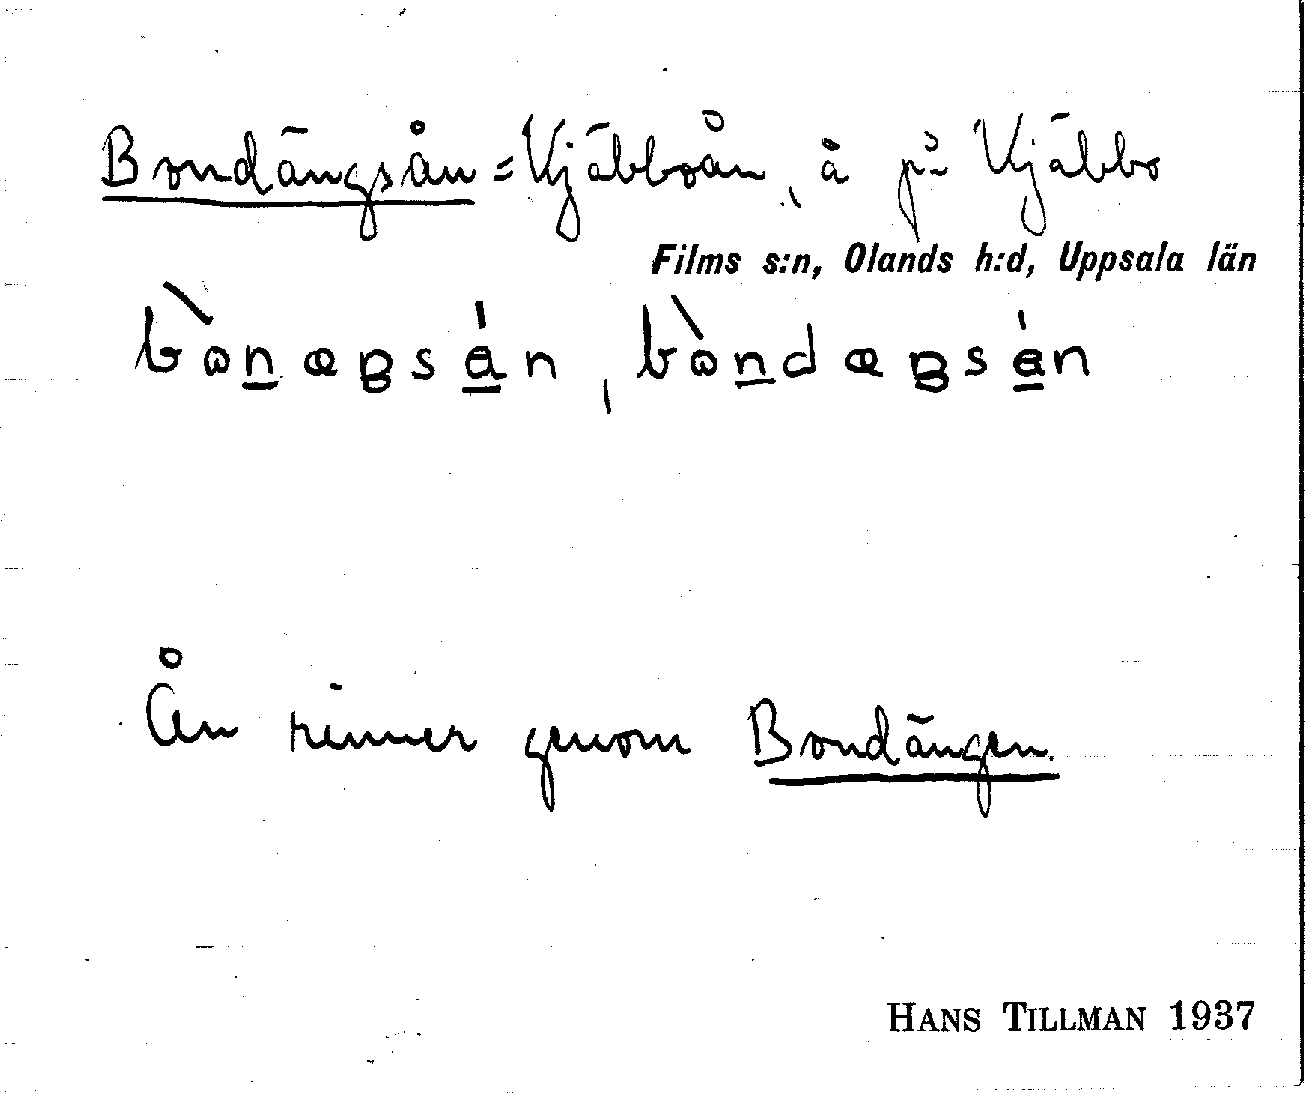 Bondängsån = Vjäbboån, å på Vjäbbo
Films s:n, Olands h:d, Uppsala län
Ån rinner genom Bondängen.
HANS TILLMAN 1937